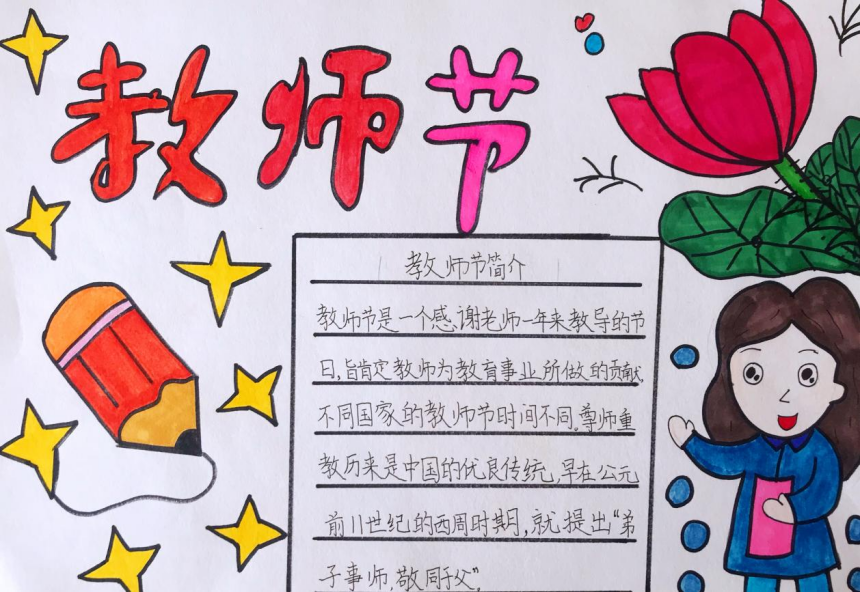 教师节
教师节简介
教师节是一个感谢老师一年来教导的节
日，旨肯定教师为教育事业所做的贡献.
不同国家的教师节时间不同。尊师重
教历来是中国的优良传统，早在公元
前11世纪的西周时期，就提出“弟
子事师，敬同于父”。